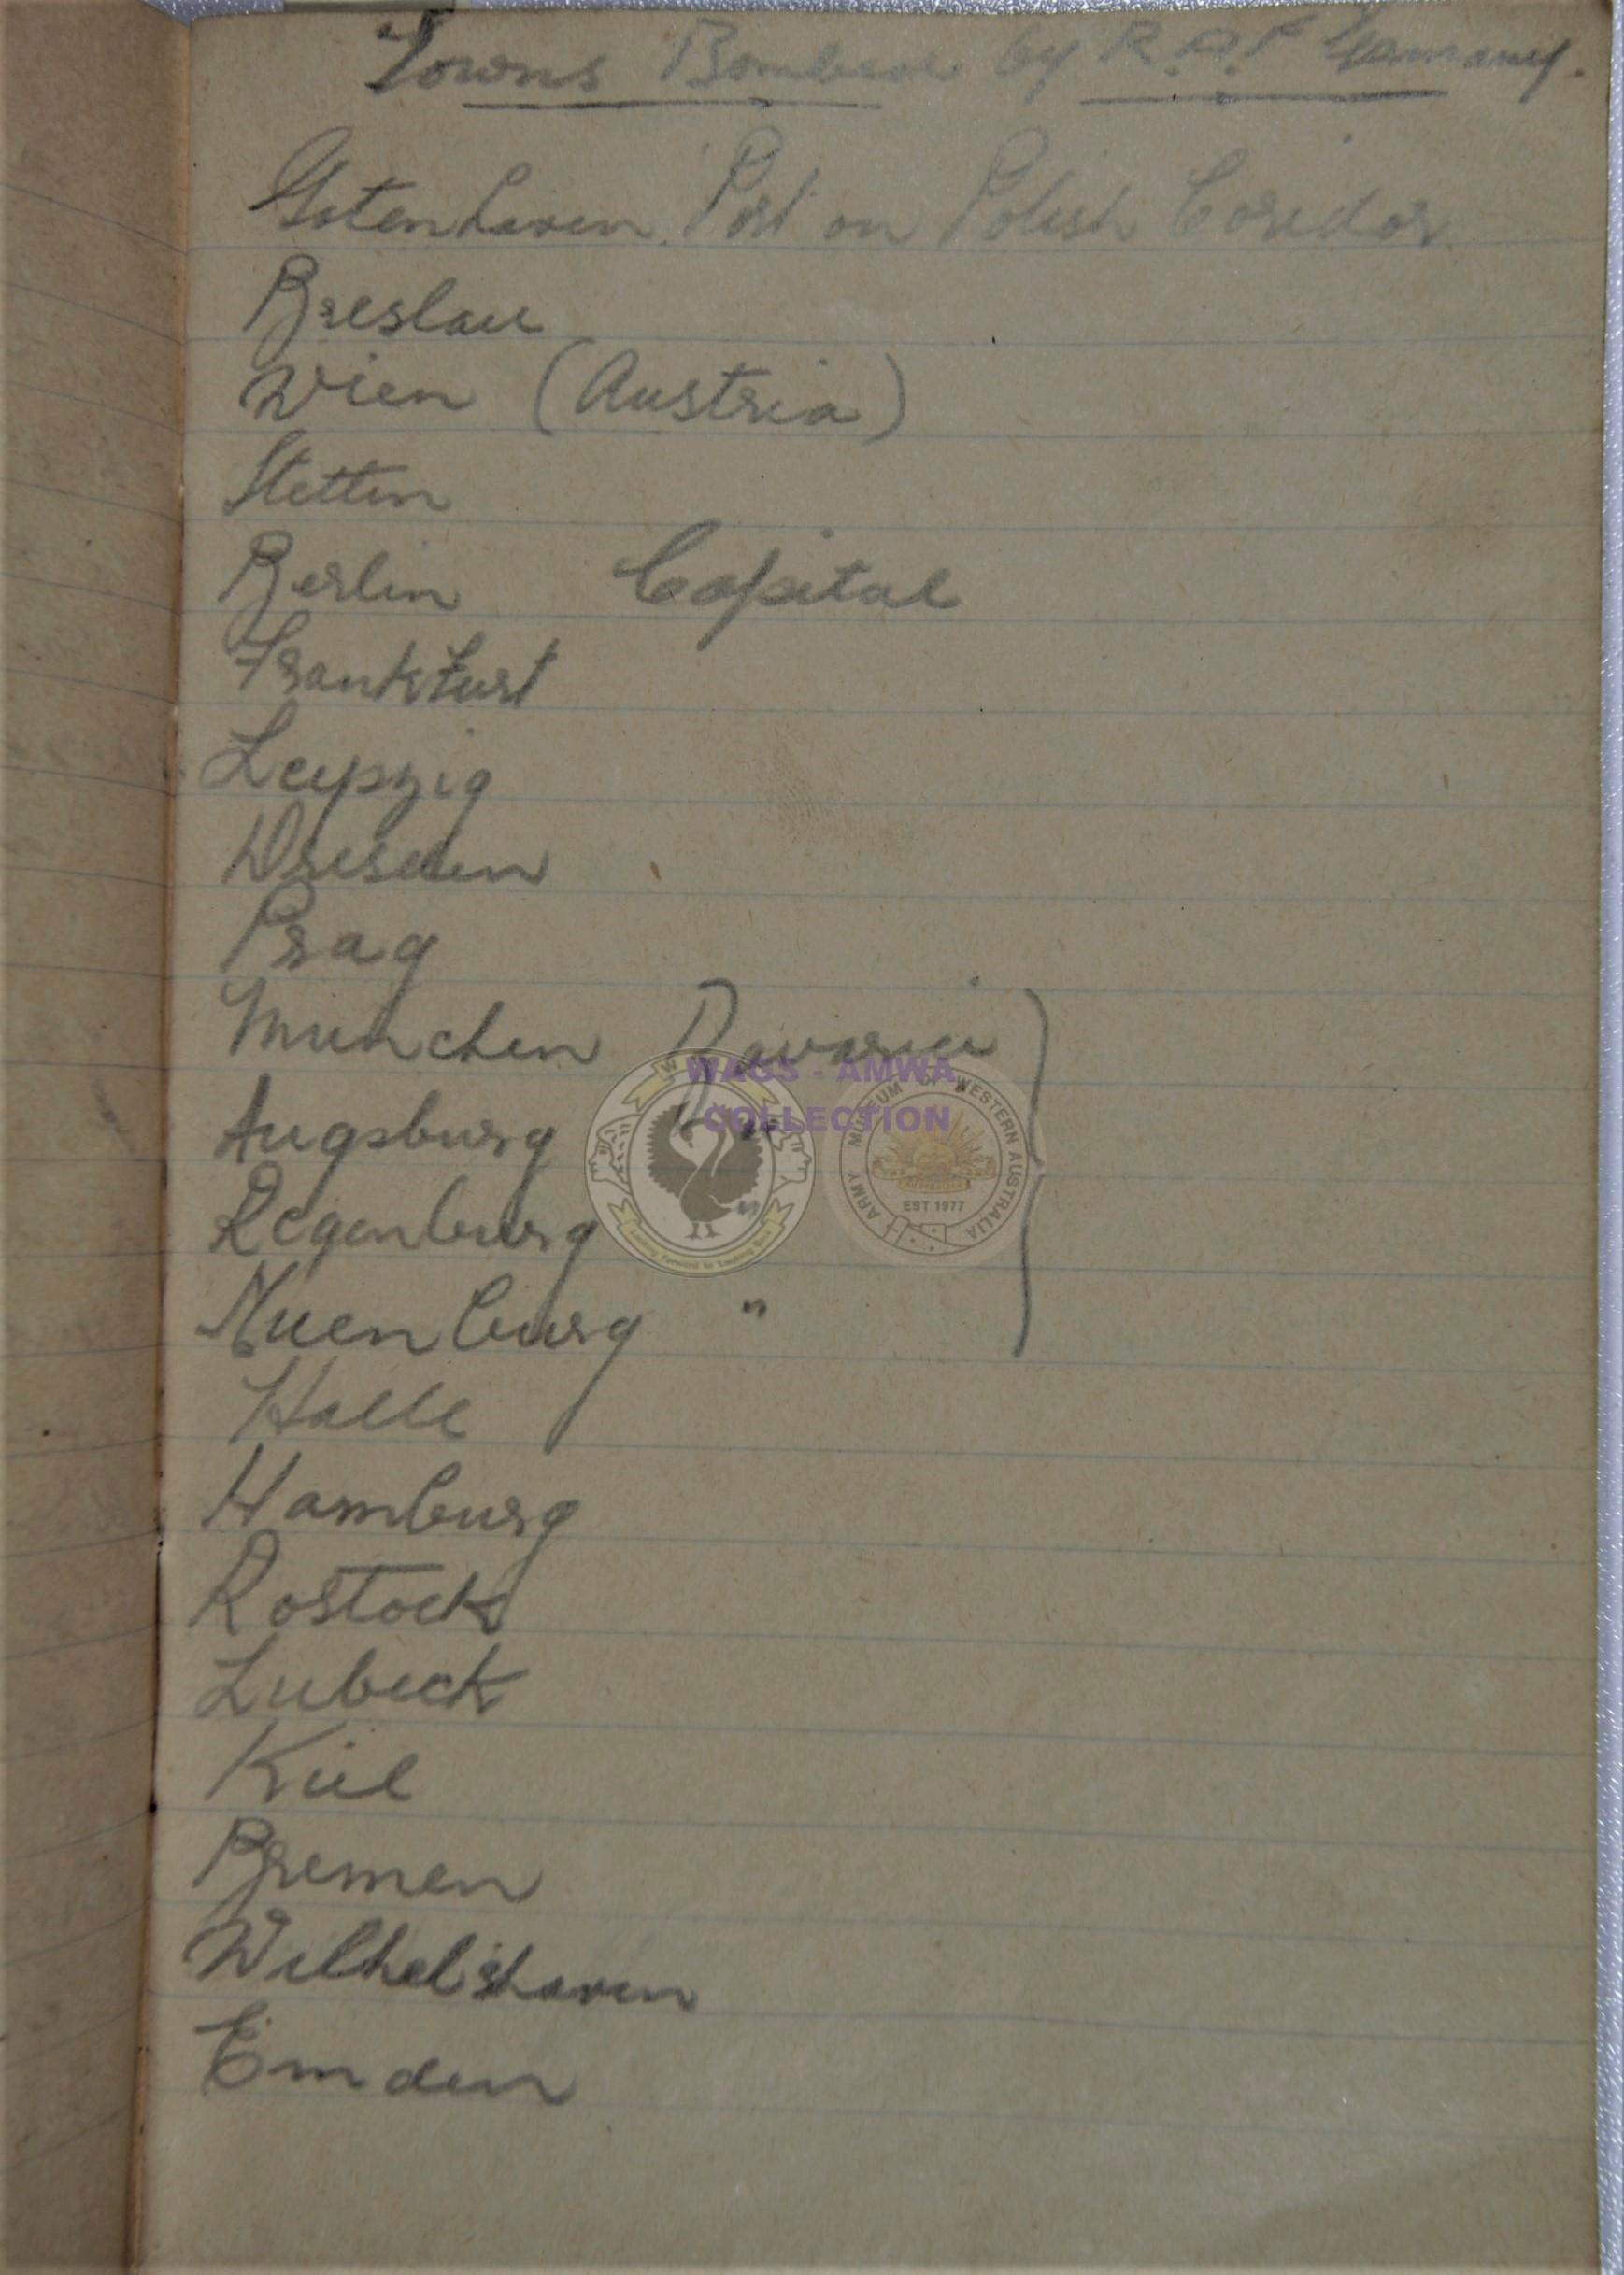 Towns Bombed by R.A.F Germany.
Gotenhaven. Port on Polish Coridor
Breslau
Wien (Austria)
Stettin
Berlin Capital
Frankfurt
Leipzig
Dresden
Prag
Munchen Bavaria
Augsburg "
Regenburg "
Nuenburg "
Halle
Hamburg
Rostock
Lubeck
Kiel
Bremen
Wilhelshaven
Emden
WAGS - AMWA
COLLECTION
ARMY MUSEUM OF WESTERN AUSTRALIA
EST 1977